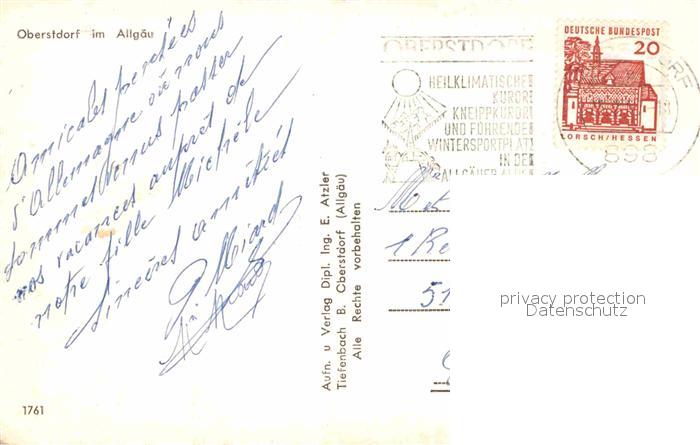 Oberstdorf im Allgäu
Amicales pensées
d'Allemagne où nous
sommes venus passer
nos vacances auprès de
notre fille Michèle
Sincères amitiés
P. Miard
1761
Aufn. u Verlag Dipl. Ing. E. Atzler
Tiefenbach B. Oberstdorf (Allgäu)
Alle Rechte vorbehalten
OBERSTDORF
HEILKLIMATISCHER
KURORT
KNEIPPKURORT
UND FÜHRENDER
WINTERSPORTPLATZ
IN DEN
ALLGÄUER ALPEN
DEUTSCHE BUNDESPOST
20
LORSCH/HESSEN
898
1 Re
51
privacy protection
Datenschutz